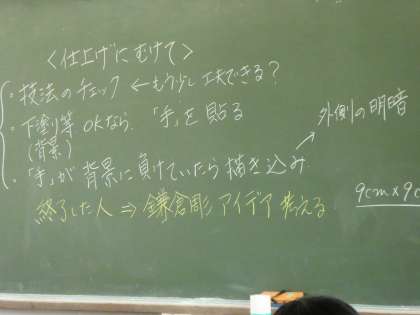 ＜仕上げにむけて＞
・技法のチェック ← もう少し工夫できる？
・下塗り等 OKなら、「手」を貼る
(背景)
・「手」が背景に負けていたら描き込み → 外側の明暗
終了した人 ⇒ 鎌倉彫アイデア考える
9cm×9c